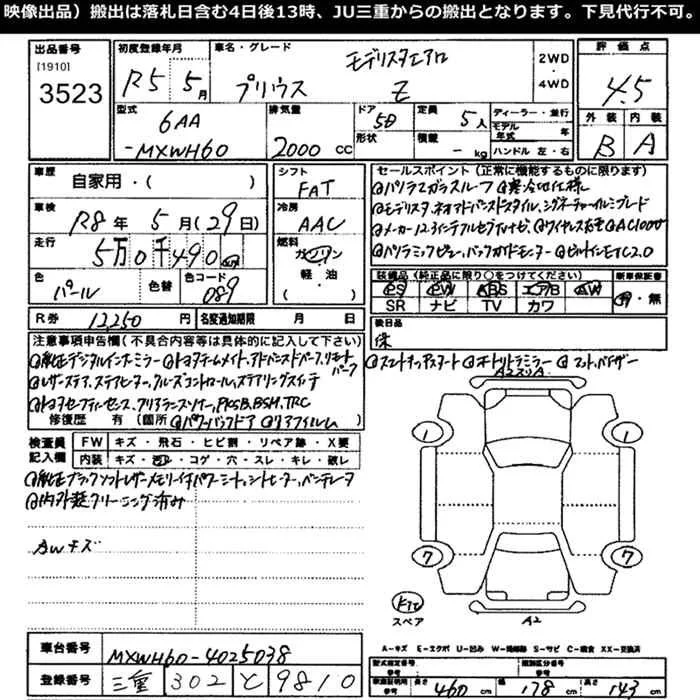 映像出品）搬出は落札日含む4日後13時、JU三重からの搬出となります。下見代行不可。
出品番号 [1910] 3523
初度登録年月 R5年 5月
車名・グレード モデリスタエアロ プリウス Z
2WD・4WD
評価点 4.5
外装 B 内装 A
型式 6AA-MXWH60
排気量 2000 cc
ドア形状 5D
定員 5人
積載 - kg
ディーラー・並行
モデル年式 年
ハンドル 左・右
車歴 自家用・( )
車検 R8年 5月(29日)
走行 5万0千490
色 パール 色替 色コード 089
シフト FAT
冷房 AAC
燃料 ガソリン 軽・油 ( )
セールスポイント（正常に機能するものに限ります）
◎パノラマガラスルーフ ◎寒冷地仕様
◎モデリスタ、ネオアドバンストスタイル、シグネーチャーイルミブレード
◎メーカー12.3インチフルセグナビ ◎ワイヤレス充電 ◎AC100V
◎パノラミックビュー、バックガイドモニター ◎ビルトインETC2.0
装備品（純正品に限り○をつけてください） 新車保証書
PS PW ABS エアB AW 有・無
SR ナビ TV カワ
R券 12,250円 名変通知期限 月 日
後日品 保
注意事項申告欄(不具合内容等は具体的に記入して下さい)
◎純正デジタルインナーミラー ◎トヨタチームメイト、アドバンストパーク、リモートパーク
◎レザーステア、ステアヒーター、クルーズコントロール、ステアリングスイッチ
◎トヨタセーフティーセンス、クリアランスソナー、PKSB、BSM、TRC
修復歴 有 (箇所 ◎パワーバックドア ◎リアフィルム )
◎スマートキープッシュスタート ◎オートリトラミラー ◎マット、バイザー
検査員記入欄 FW キズ・飛石・ヒビ割・リペア跡・X要
内装 キズ・汚レ・コゲ・穴・スレ・キレ・破レ
◎純正ブラックソフトレザーメモリー付パワーシート、シートヒーター、ベンチレータ
◎内外装クリーニング済み
AWキズ
A2スリA
1
1
7
7
キズ
スペア
A2
A-キズ E-エクボ U-凹み W-補修跡 S-サビ C-腐食 XX-交換済
車台番号 MXWH60-4025038
登録番号 三重 302 と 9810
型式指定番号 参考 類別区分番号 参考
車検証明用 参考 長さ 460 cm 幅 178 cm 高さ 143 cm